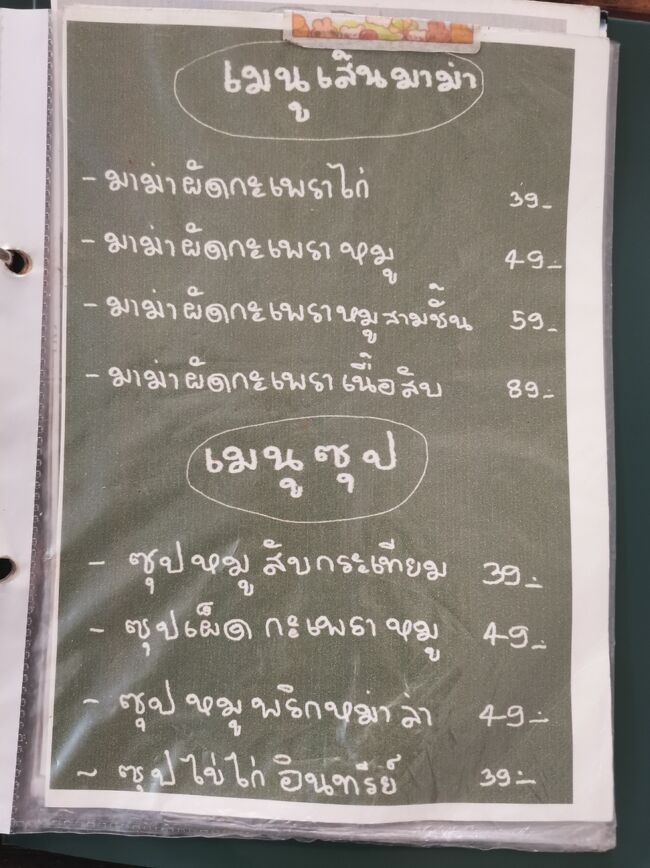 เมนูเส้นมาม่า
- มาม่าผัดกะเพราไก่ 39.-
- มาม่าผัดกะเพรา หมู 49.-
- มาม่าผัดกะเพราหมูสามชั้น 59.-
- มาม่าผัดกะเพรา เนื้อสับ 89.-
เมนู ซุป
- ซุปหมู สับกระเทียม 39.-
- ซุปเผ็ด กะเพรา หมู 49.-
- ซุป หมู พริกหม่าล่า 49.-
- ซุปไข่ไก่ อินทรีย์ 39.-